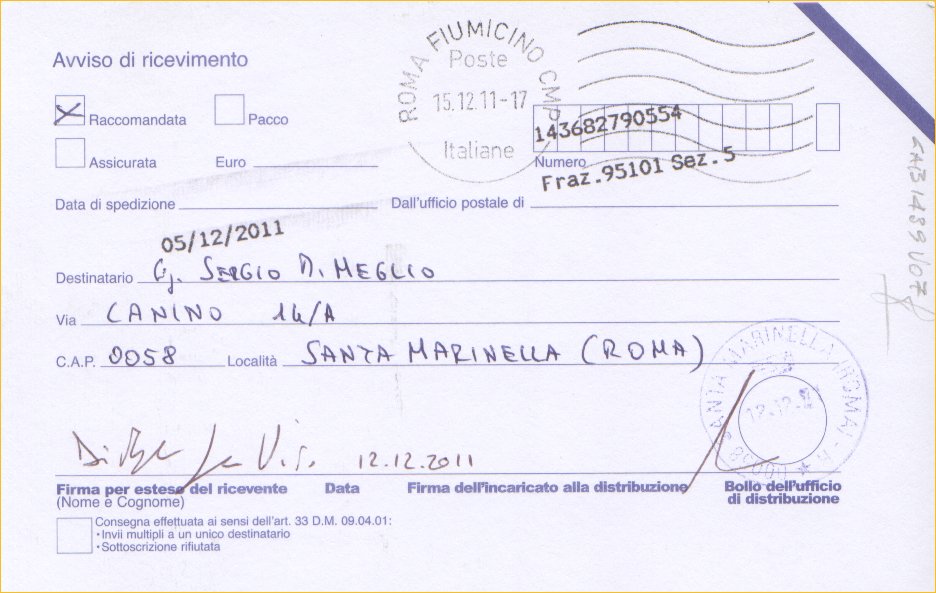 Avviso di ricevimento
ROMA FIUMICINO CMP
Poste
15.12.11-17
Italiane
Raccomandata
Pacco
143682790554
Assicurata
Euro
Numero
Fraz.95101 Sez.5
Data di spedizione
Dall'ufficio postale di
05/12/2011
Destinatario SERGIO DI MEGLIO
Via CANINO 14/A
C.A.P. 0058 Località SANTA MARINELLA (ROMA)
SANTA MARINELLA (ROMA)
12.12.
12.12.2011
Firma per esteso del ricevente Data Firma dell'incaricato alla distribuzione Bollo dell'ufficio
(Nome e Cognome) di distribuzione
Consegna effettuata ai sensi dell'art. 33 D.M. 09.04.01:
•Invii multipli a un unico destinatario
•Sottoscrizione rifiutata